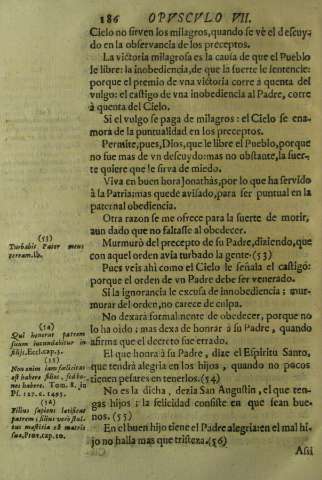 186 OPVSCVLO VII.
Cielo no sirven los milagros, quando se vè el descuydo
do en la observancia de los preceptos.
La victoria milagrosa es la causa de que el Pueblo
le libre: la inobediencia, de que la suerte le sentencie:
porque el premio de vna victoria corre à quenta del
vulgo: el castigo de vna inobediencia al Padre, corre
à quenta del Cielo.
Si el vulgo se paga de milagros: el Cielo se ena-
mora de la puntualidad en los preceptos.
Permite, pues, Dios, que le libre el Pueblo, porque
no fue mas de vn descuydo: mas no obstante, la suer-
te quiere que le sirva de miedo.
Viva en buen hora Jonathàs, por lo que ha servido
à la Patria: mas quede avisado, para ser puntual en la
paternal obediencia.
Otra razon se me ofrece para la suerte de morir,
aun dado que no faltasse al obedecer.
Murmurò del precepto de su Padre, diziendo, que
con aquel orden avia turbado la gente. (53)
Pues veis ahi como el Cielo le señala el castigo:
porque el orden de vn Padre debe ser venerado.
Si la ignorancia le excusa de innobediencia: mur-
murar del orden, no carece de culpa.
No dexarà formalmente de obedecer, porque no
lo ha oido: mas dexa de honrar à su Padre, quando
afirma que el decreto fue errado.
El que honra à su Padre, dize el Espiritu Santo,
que tendrà alegria en los hijos, quando no pocos
tienen pesares en tenerlos. (54)
No es la dicha, dezia San Augustin, el que ten-
gas hijos: la felicidad consiste en que sean bue-
nos. (55)
En el buen hijo tiene el Padre alegria: en el mal hi-
jo no halla mas que tristeza. (56)
Assi
(53)
Turbabit Pater meus
terram. Ib.
(54)
Qui honorat patrem
suum iucundabitur in
filijs. Eccl. cap. 3.
(55)
Non enim iam foelicitas
est habere filios, sed bo-
nos habere. Tom. 8. in
Ps. 127. c. 1493.
(56)
Filius sapiens laetificat
patrem: filius verò stul-
tus maestitia est matris
suae. Prov. cap. 10.